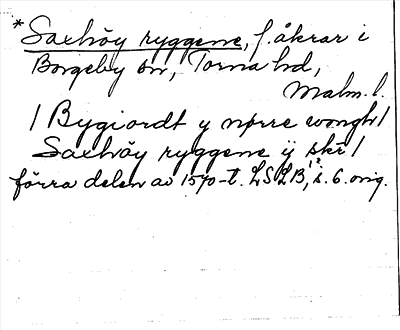 * Saxhöy ryggene, f. åkrar i
Borgeby sn, Torna hd,
Malm. l.
/ Bygiordt y nørre wongh /
Saxhöy ryggene ij skr /
förra delen av 1570-t. LSLB, s. 6. orig.